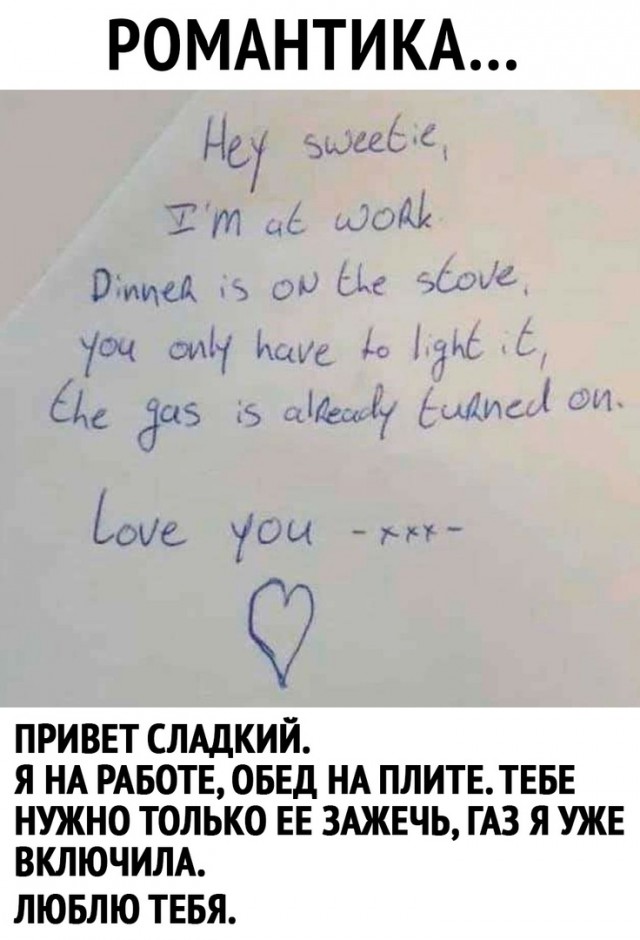 РОМАНТИКА...
Hey sweetie,
I'm at work.
Dinner is on the stove,
you only have to light it,
the gas is already turned on.
Love you -xxx-
ПРИВЕТ СЛАДКИЙ.
Я НА РАБОТЕ, ОБЕД НА ПЛИТЕ. ТЕБЕ
НУЖНО ТОЛЬКО ЕЕ ЗАЖЕЧЬ, ГАЗ Я УЖЕ
ВКЛЮЧИЛА.
ЛЮБЛЮ ТЕБЯ.